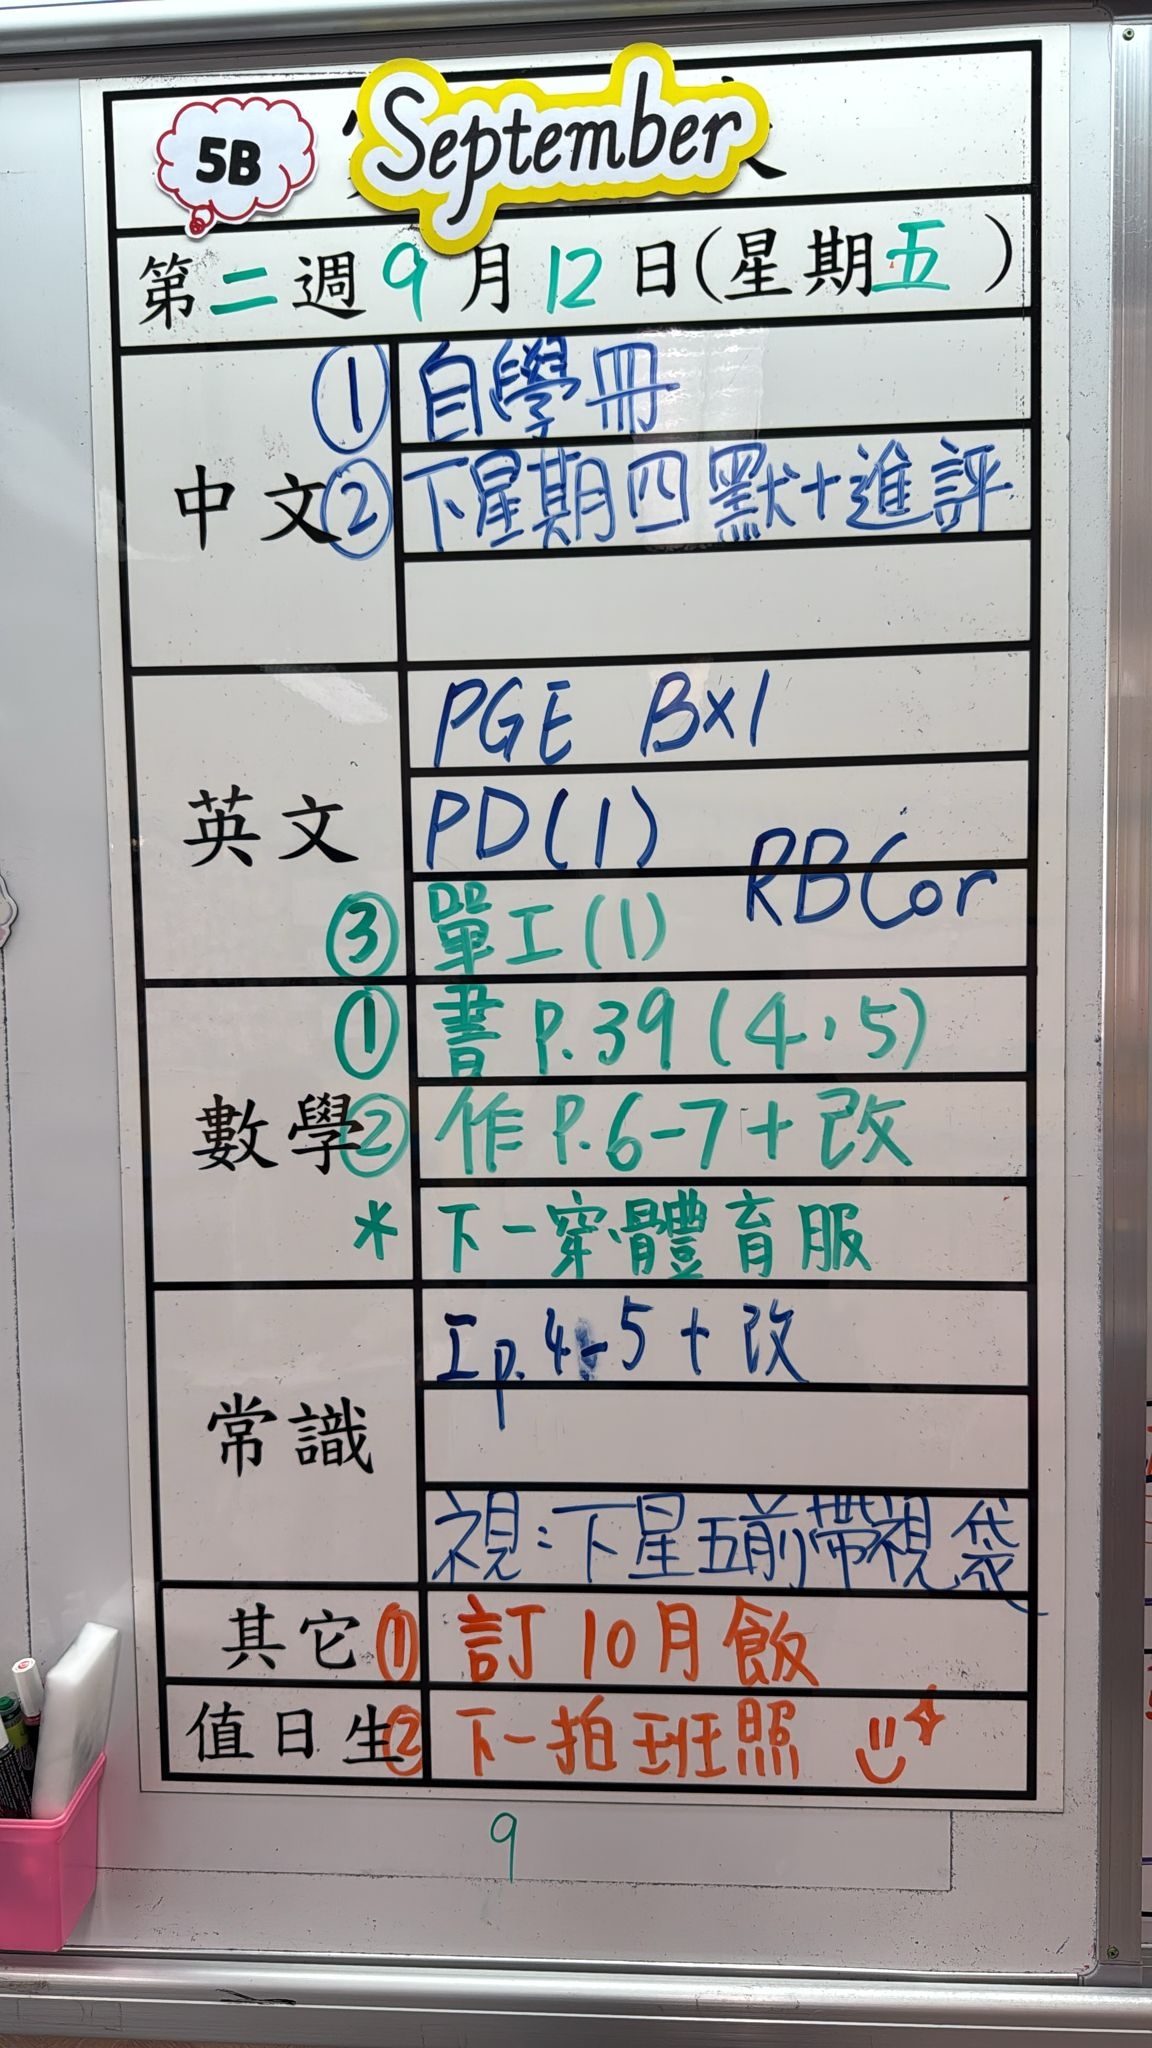 5B
September
第二週9月12日(星期五)
中文
① 自學冊
② 下星期四默+進評
英文
PGE B×1
PD(1)
RBCor
③ 單工(1)
數學
① 書P.39(4,5)
② 作P.6-7+改
* 下一穿體育服
常識
工p.4-5+改
視:下星五前帶視袋
其它
① 訂10月飯
值日生
② 下一拍班照
9